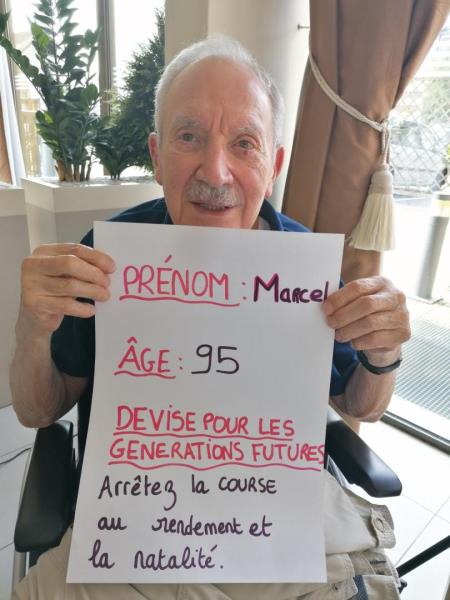 PRÉNOM : Marcel
ÂGE : 95
DEVISE POUR LES
GENERATIONS FUTURES
Arrêtez la COURSE
au rendement et
la natalité.